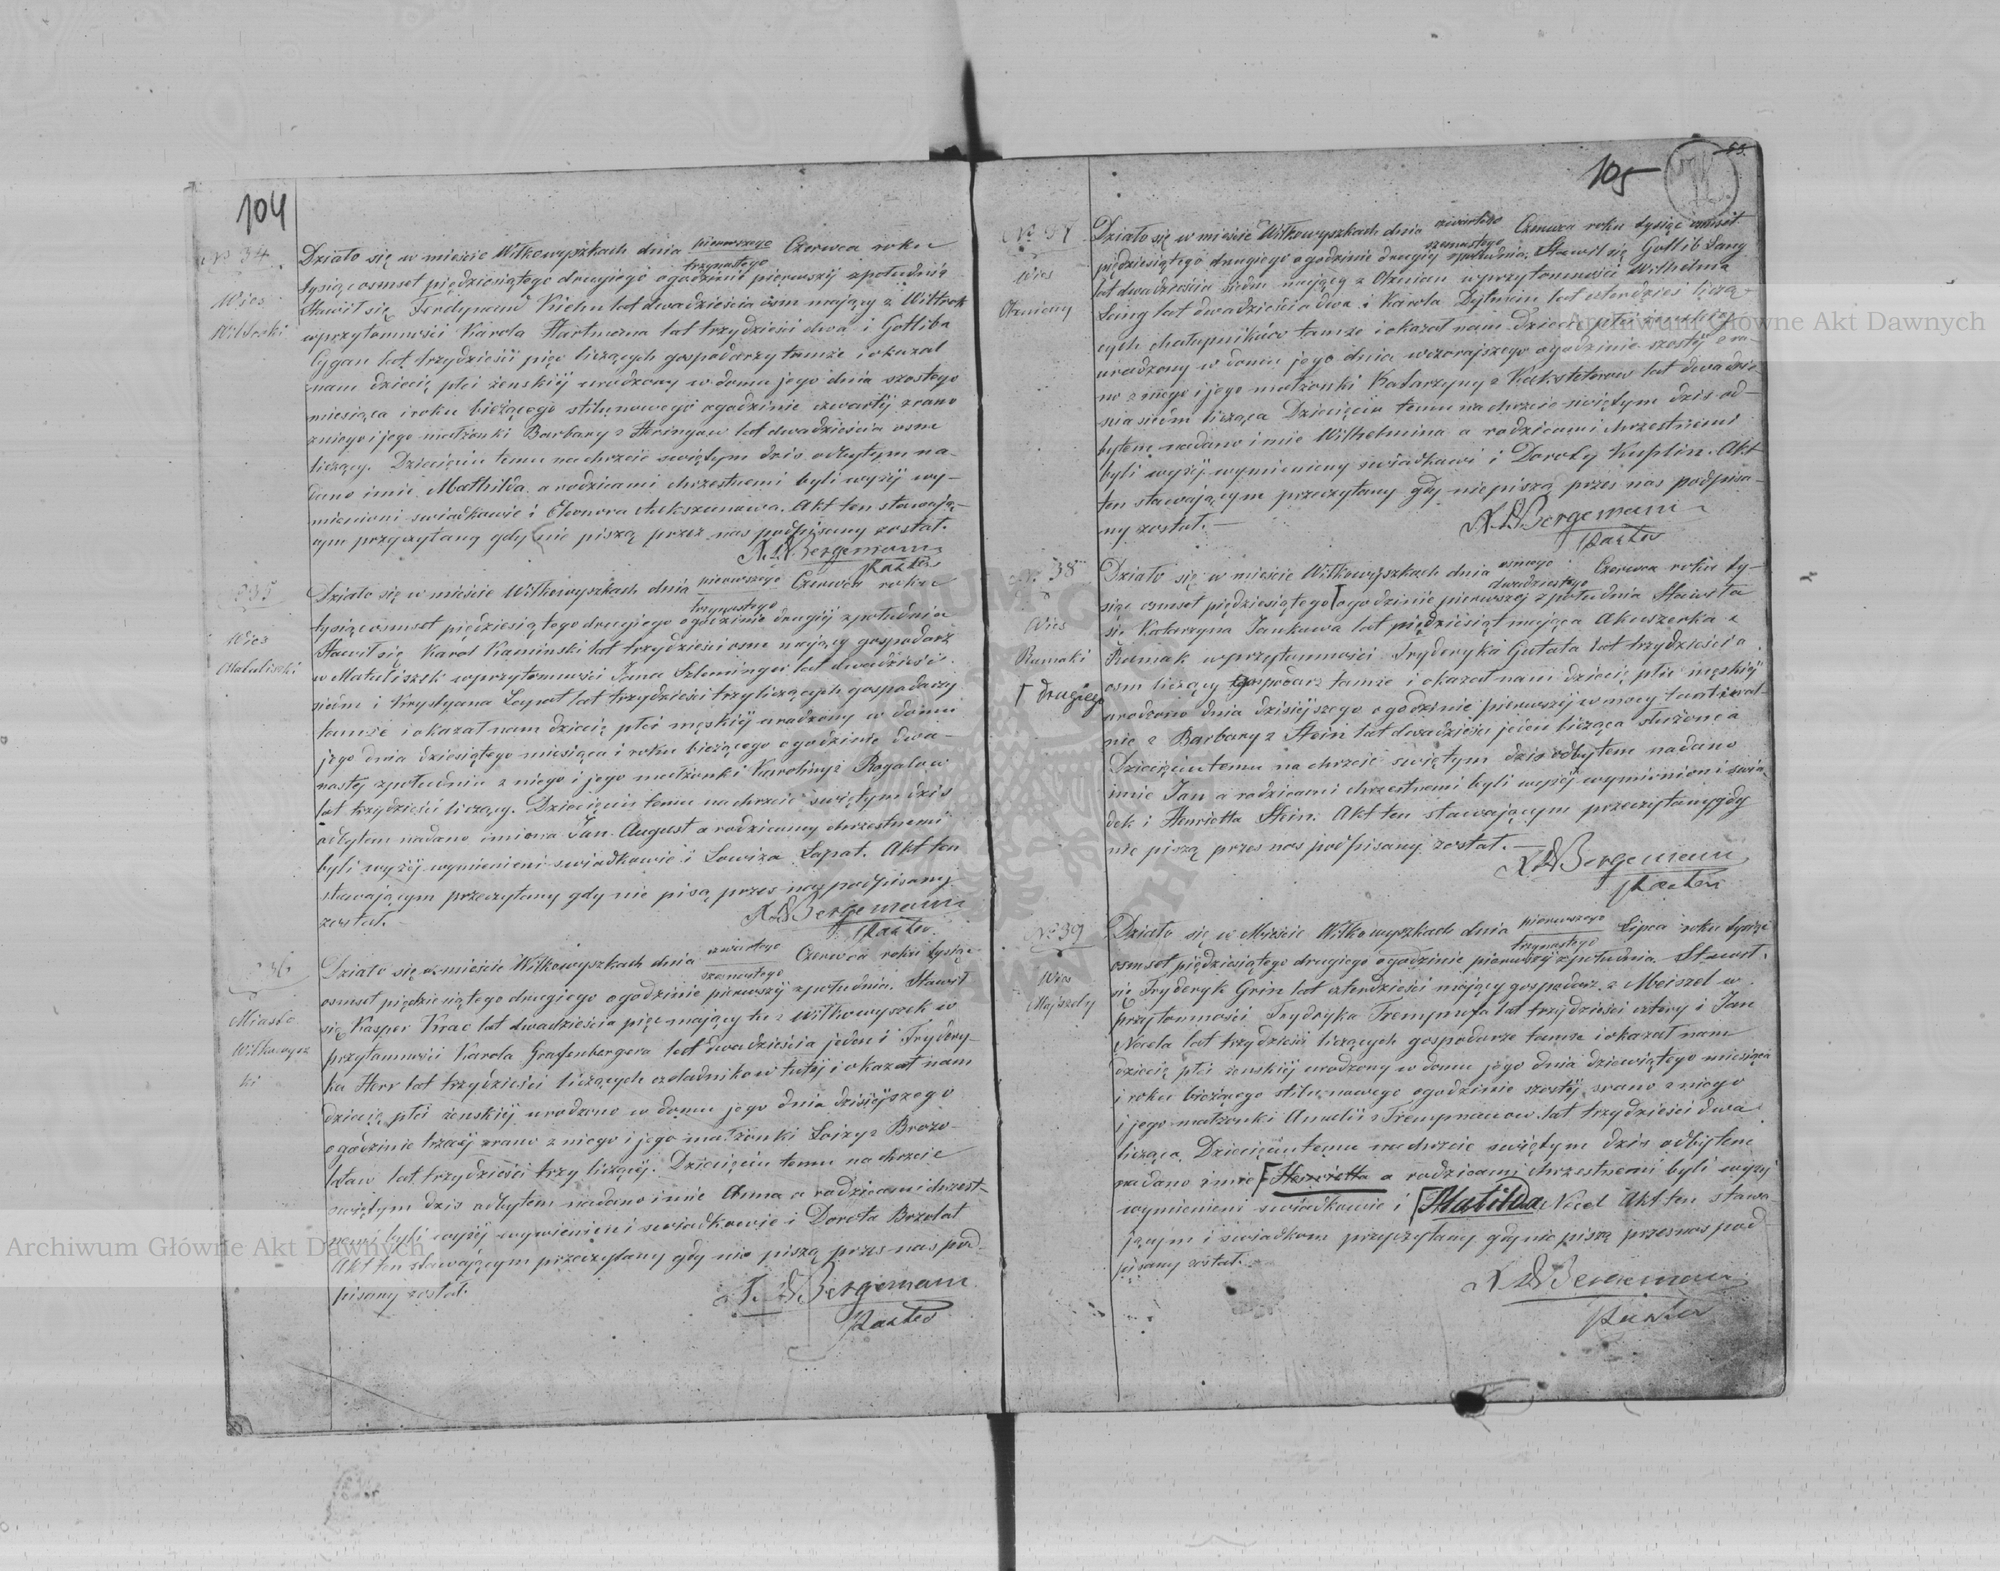 104
No 34
Wies
Działo się w mieście Wiłkowyszkach dnia pierwszego / trzynastego Czerwca roku
tysiąc osmset pięćdziesiątego drugiego o godzinie pierwszij zpołudnia
Stawił się Ferdynand Kiehn lat dwadzieścia osm mający z
wprzytomności Karola Hartmana lat trzydzieści dwa i Gotliba
Cygan lat trzydzieści pięc liczących gospodarzy tamże i okazał
nam dziecię płci żenskiij urodzony w domu jego dnia szostego
miesiąca i roku bieżącego stilu nowego o godzinie czwartij zrana
zniego i jego małżonki Barbary z Heringow lat dwadzieścia osm
liczącý. Dziecięciu temu na chrzcie swiętym dzis odbytym na-
dano imie Mathilda a rodzicami chrzestnemi byli wyżij wy-
mienieni swiadkowie i Eleonora Akt ten stawają-
cym przyczytany gdy nie piszą przez nas podpisany został.
Bergemann
Pastor
No 35
Wies
Mataliszki
Działo się w mieście Wiłkowyszkach dnia pierwszego / trzynastego Czerwca roku
tysiąc osmset pięćdziesiątego drugiego o godzinie drugiij zpołudnia
Stawił się Karol Kaminski lat trzydzieści osm mający gospodarz
w Mataliszek wprzytomności Jana Szleminger lat dwadzieści
siedm i Krystyana Lozat lat trzydzieści trzy liczących gospodarzy
tamże i okazał nam dziecię płci męskiij urodzony w domu
jego dnia dziesiątego miesiąca i roku bieżącego o godzinie dwa-
nastej zpołudnia z niego i jego małżonki Karoliny z Rogalow
lat trzydzieści liczący. Dziecięciu temu na chrzcie swiętym dzis
odbytem nadano imiona Jan August a rodzicamy chrzestnemi
byli wyżij wymienieni swiadkowie i Lowiza Lozat. Akt ten
stawającym przeczytany gdy nie pisą przez nas podpisany
został.
Bergemann
Pastor
36
Miasto
Wilkowysz
ki
Działo się w mieście Wiłkowyszkach dnia czwartego / szesnastego Czerwca roku tysiąc
osmset pięćdziesiątego drugiego o godzinie pierwszij zpołudnia. Stawił
się Kasper Krac lat dwadzieścia pięc mający tu z Wiłkowyszek w
przytomności Karola Grafenbergera lat dwadzieścia jeden i Frydery-
ka Herr lat trzydzieści liczących czeladnikow tutij i okazał nam
dziecię płci żenskiij urodzono w domu jego dnia dzisijszego
o godzinie trzecij zrana z niego i jego małżonki Loizy z Brozo-
latow lat trzydzieści trzy liczącij. Dziecięciu temu na chrzcie
swiętym dzis odbytem nadano imie Anna a rodzicami chrzest-
nemi byli wyżij wymienieni swiadkowie i Dorota Bozolat
Akt ten stawającym przeczytany gdy nie piszą przes nas pod-
pisany został.
Bergemann
Pastor
105
No 37
Wies
Działo się w mieście Wiłkowyszkach dnia czwartego / szesnastego Czerwca roku tysiąc osmset
pięćdziesiątego drugiego o godzinie drugiij zpołudnia. Stawił się Gotlib Lang
lat dwadzieścia siedm mający z wprzytomności Wilhelma
Lang lat dwadzieścia dwa i Karola lat czterdzieści liczą-
cych chałupnikow tamże i okazał nam dziecię płci żenskiij
urodzony w domu jego dnia wczorajszego o godzinie szostij zra-
no z niego i jego małżonki Katarzyny z lat dwadzie-
scia siedm licząca Dziecięciu temu na chrzcie swiętym dzis od-
bytem nadano imie Wilhelmina a rodzicami chrzestnemi
byli wyżij wymieniony swiadkowi i Doroty Kuplin. Akt
ten stawającym przeczytany gdy nie piszą przes nas podpisa-
ny został.
Bergemann
Pastor
No 38
Wies
Rumaki
drugiego
Działo się w mieście Wiłkowyszkach dnia osmego / dwudziestego Czerwca roku ty-
siąc osmset pięćdziesiątego o godzinie pierwszej zpołudnia Stawiła
się Katarzyna Jankuwa lat pięćdziesiąt mająca Akuszerka z
Rumak wprzytomności Fryderyka Gutata lat trzydzieści
osm liczący gospodarz tamże i okazał nam dziecię płci męskiij
urodzono dnia dzisijszego o godzinie pierwszij w nocy
nie z Barbary z Stein lat dwadzieścia jeden licząca służąca
Dziecięciu temu na chrzcie swiętym dzis odbytem nadano
imie Jan a rodzicami chrzestnemi byli wyżij wymienioni swia-
dek i Henrietta Stein. Akt ten stawającym przeczytany gdy
nie piszą przes nas podpisany został.
Bergemann
Pastor
No 39
Wies
Majszely
Działo się w Mieście Wiłkowyszkach dnia pierwszego / trzynastego Lipca roku tysiąc
osmset pięćdziesiątego drugiego o godzinie pierwszij zpołudnia. Stawił
się Fryderyk Grin lat czterdzieści mający gospodarz z Meiszel w
przytomności Frydryka Trempnefa lat trzydzieści cztery i Jan
Noela lat trzydzieści liczących gospodarze tamze i okazał nam
dziecię płci żenskiij urodzony w domu jego dnia dziewiątego miesiąca
i roku bieżącego stilu nowego o godzinie szostij zrano z niego
i jego małżonki Amalii z Trempnauow lat trzydzieści dwa
licząca. Dziecięciu temu na chrzcie swiętym dzis odbytem
nadano imie Henrietta a rodzicami chrzestnemi byli wyżij
wymienieni swiadkowie i Matilda Noel Akt ten stawa-
jącym i swiadkom przyczytany gdy nie piszą przes nas pod-
pisany został.
Bergemann
Pastor
Archiwum Główne Akt Dawnych
Archiwum Główne Akt Dawnych